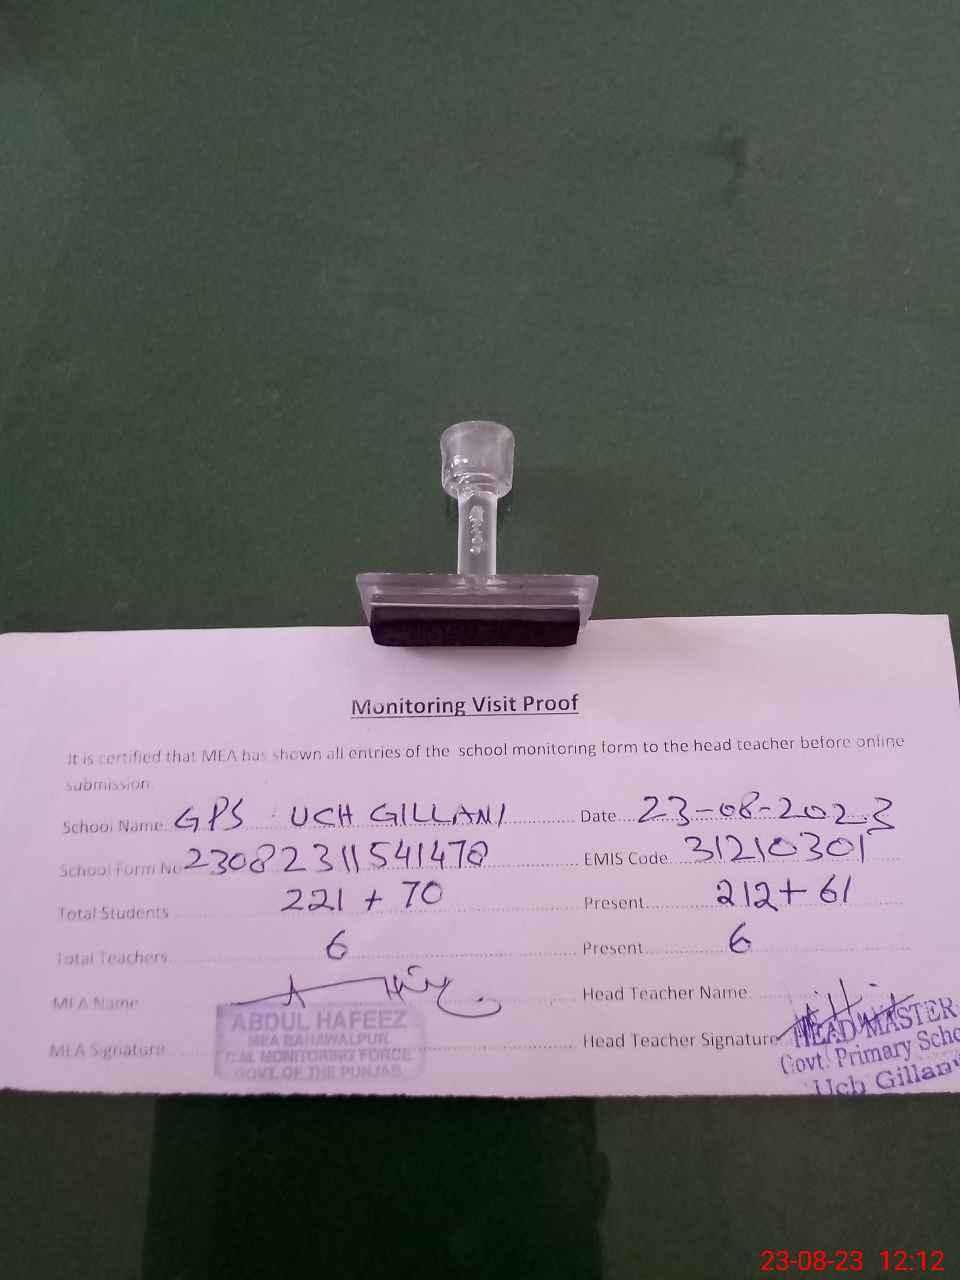 Monitoring Visit Proof
It is certified that MEA has shown all entries of the school monitoring form to the head teacher before online
submission.
School Name GPS UCH GILLANI Date 23-08-2023
School Form No 23082311541478 EMIS Code 31210301
Total Students 221 + 70 Present 212 + 61
Total Teachers 6 Present 6
MEA Name Head Teacher Name
ABDUL HAFEEZ
MEA BAHAWALPUR
C.M. MONITORING FORCE
GOVT. OF THE PUNJAB
MEA Signature Head Teacher Signature
HEAD MASTER
Govt. Primary Scho
Uch Gillani
23-08-23 12:12